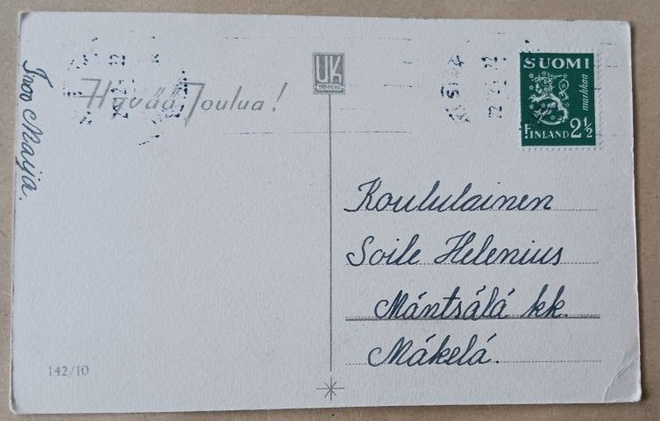 Hyvää Joulua!
UK
SUOMI
markkaa
FINLAND 2½
Koululainen
Soile Helenius
Mäntsälä kk.
Mäkelä.
Maija.
142/10